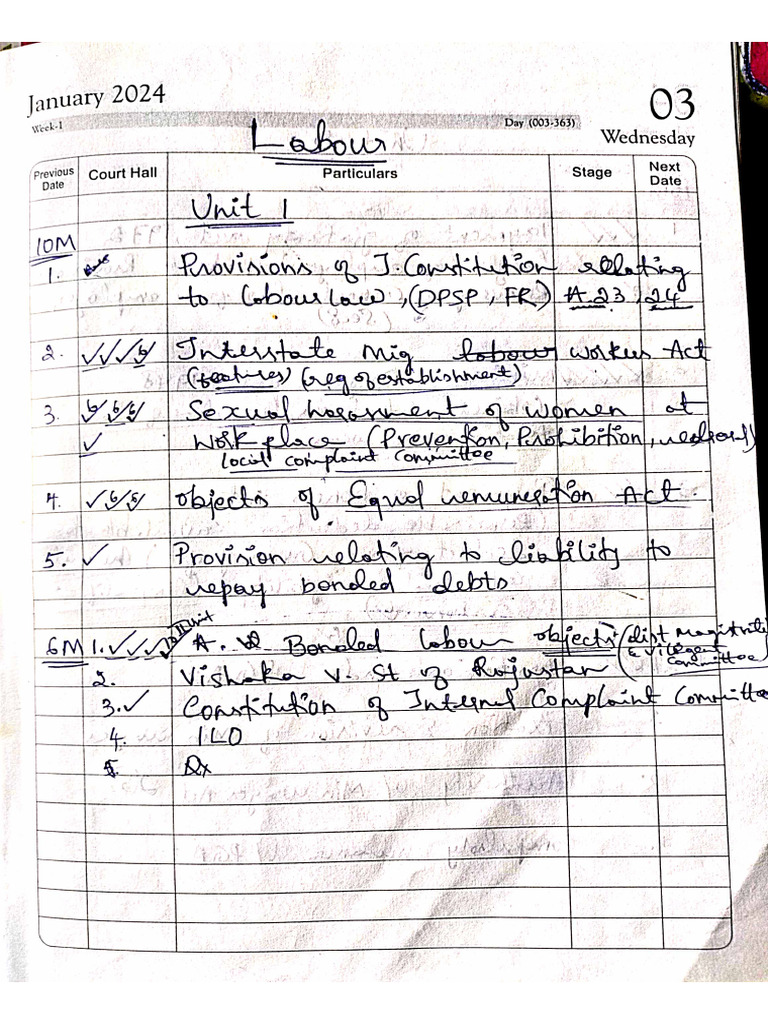 January 2024
03
Week-1
Day (003-363)
Wednesday
Labour
Previous Date
Court Hall
Particulars
Stage
Next Date
Unit 1
10M
1. Provisions of I. Constitution relating
to Labour law, (DPSP, FR) A. 23, 24
2. ✓✓✓ Interstate Mig labour workers Act
(features) (reg of establishment)
3. Sexual harassment of women at
✓ Work place (Prevention, Prohibition, redressal)
local complaint Committee
4. ✓ objects of Equal remuneration Act.
5. ✓ Provision relating to liability to
repay bonded debts
6M 1. ✓✓✓ II unit A. Bonded labour objects (dist magistrate
& Vigilent
Committee)
2. Vishaka v. St of Rajustan
3. ✓ Constitution of Internal Complaint Committee
4. ILO
5.